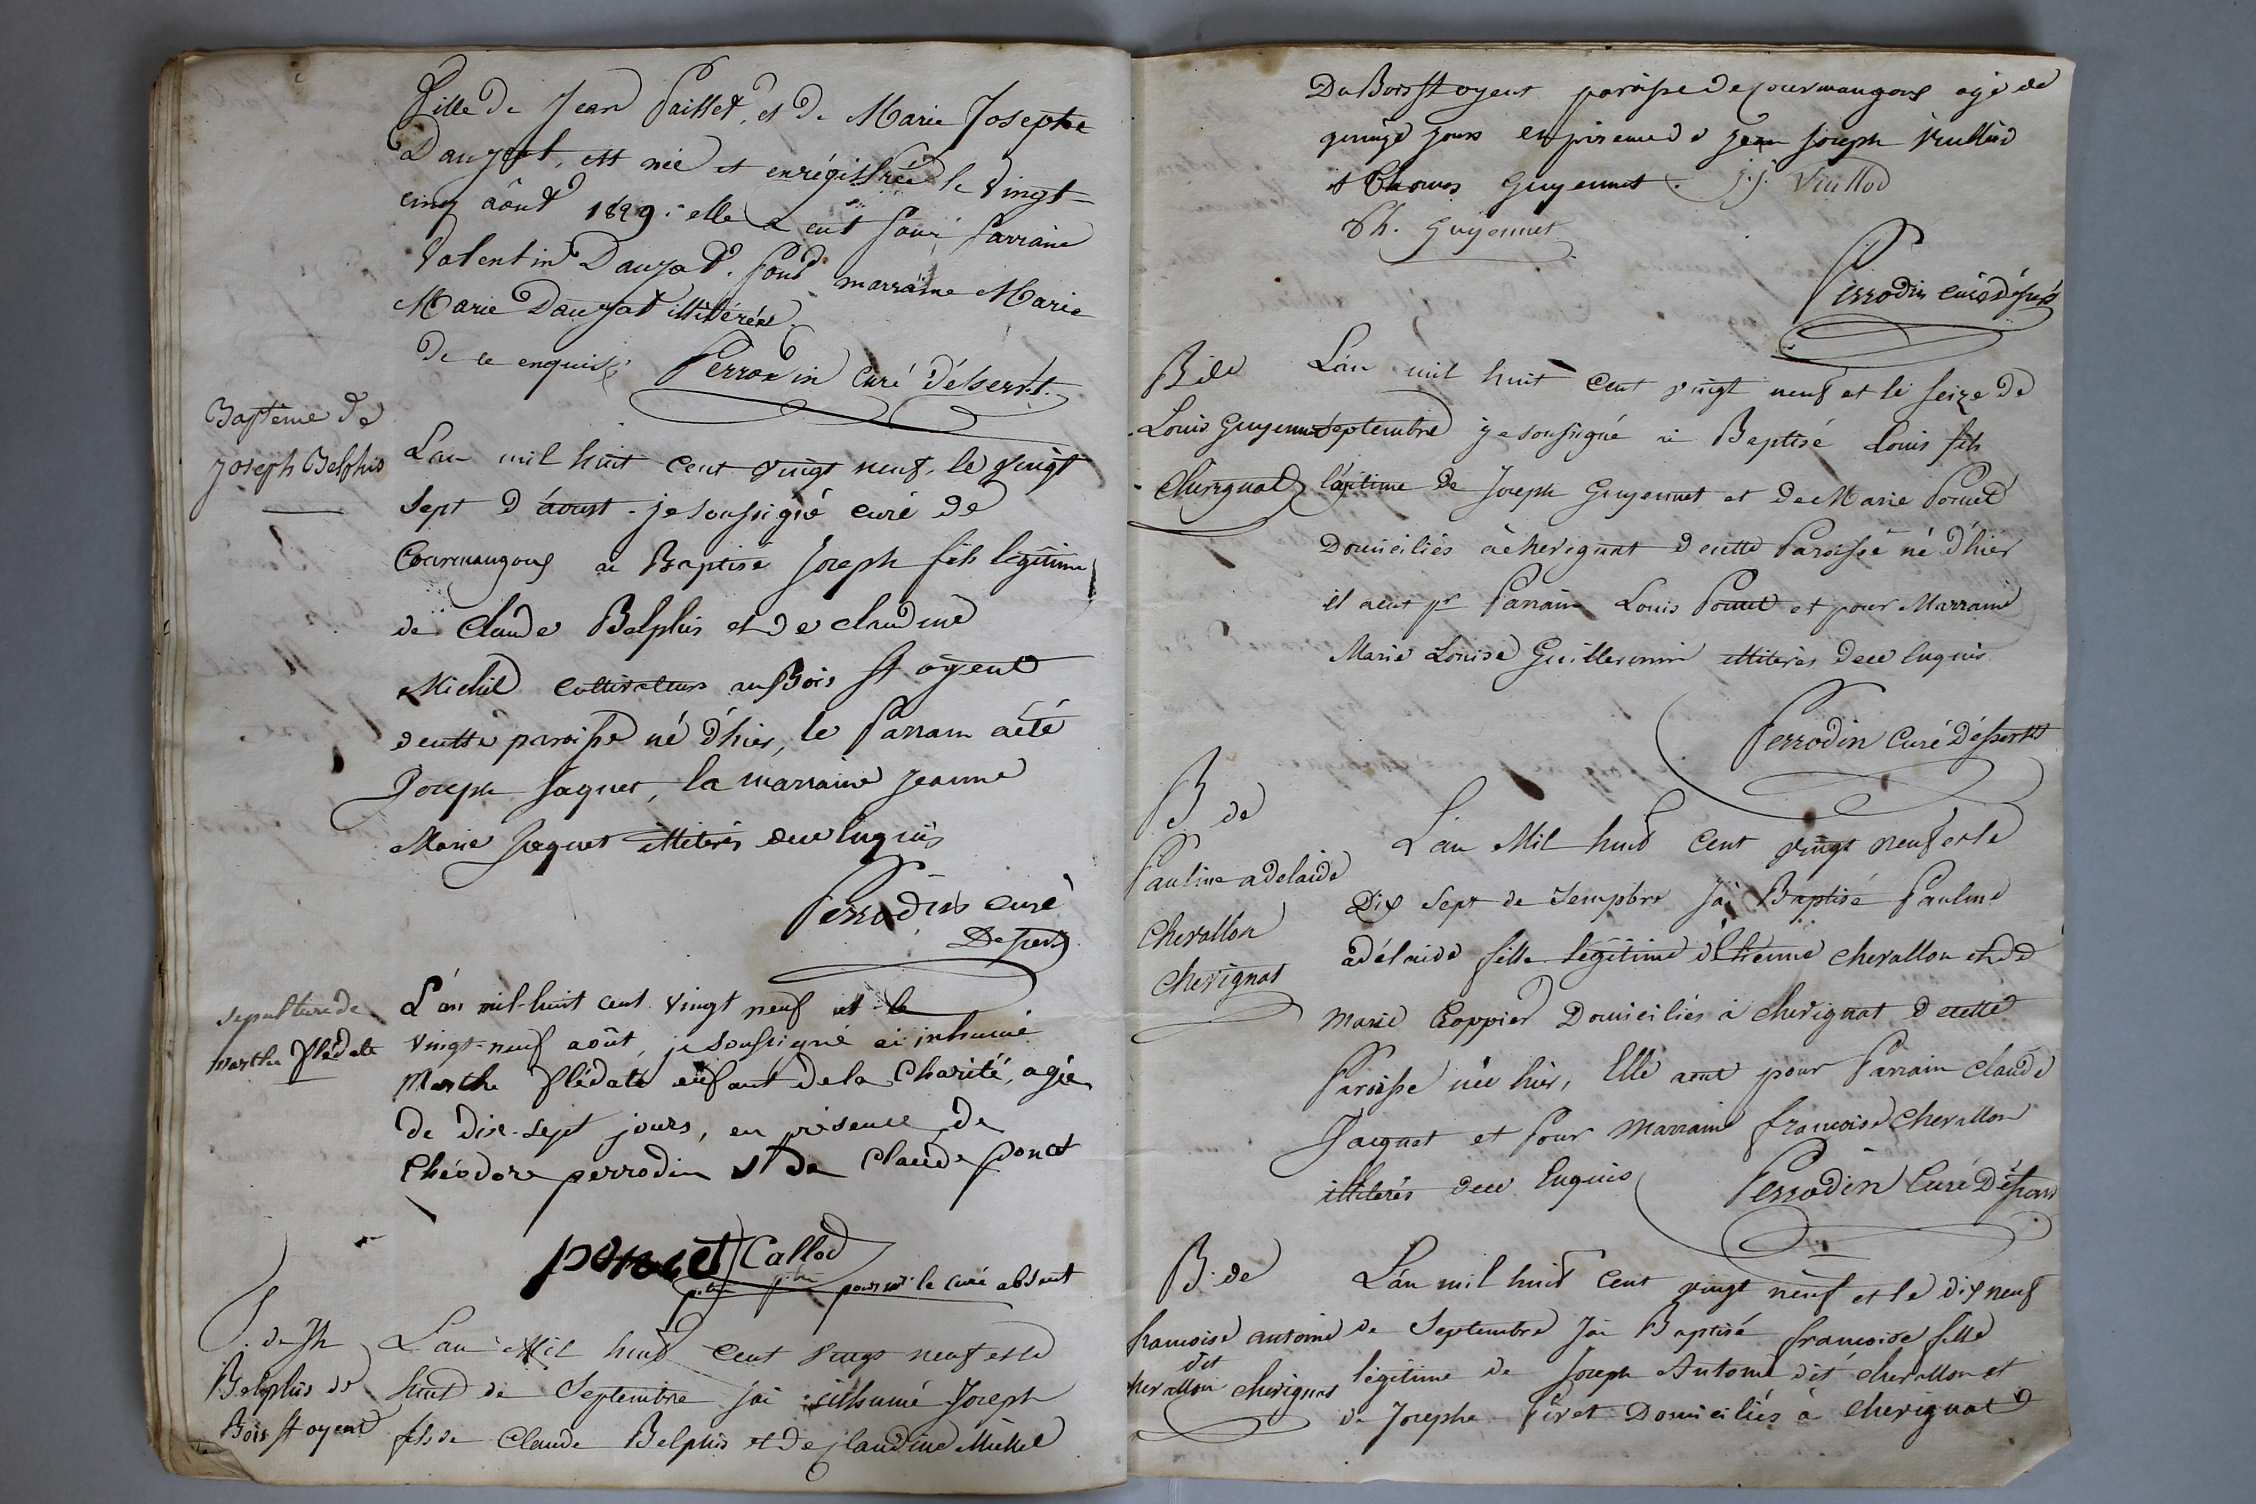 Fille de Jean Paillet, et de Marie Josephe
Dauzat, est née et enrégistrée le Vingt-
cinq août 1829. elle a eut pour Parraine
Valentin Dauzat. pour marraine Marie
Marie Dauzat illitérés
de ce enquis. Perrodin Curé désservt.
Baptême de
Joseph Belphis
L'an mil huit cent vingt neuf, le vingt
sept d'aoust je soussigné curé de
Courmangoux ai Baptisé Joseph fils legitime
de Claude Belphis et de claudine
Michel cultivateurs au Bois St oyent
de cette paroisse né d'hier, le Parrain a été
Joseph Jaquet, la marraine Jeanne
Marie Jaquet illiterés de ce Enquis
Perrodin curé
Desserv.
sepulture de
Marthe flédate
L'an mil-huit cent vingt neuf et le
vingt-neuf août je soussigné ai inhumé
Marthe flédate enfant de la Charité, agée
de dix-sept jours, en présence de
théodore perrodin et de Claude poncet
poncet Callod
pour mr le curé absent
S. de Jh
Belphis de
Bois St oyent
L'an Mil huit Cent vingt neuf et le
huit de Septembre j'ai inhumé Joseph
fils de Claude Belphis et de Claudine Michel
Du Bois St oyent paroisse de Courmangoux agé de
quinze jours en présence de Jean Joseph Vuillod
et Thomas Guyennet. j. j. Vuillod
Th. Guyennet
Perrodin curé désserv
B. de
Louis Guyennet
Cherignat
L'an mil huit Cent vingt neuf et le seize de
Septembre je soussigné ai Baptisé Louis fils
légitime de Joseph Guyennet et de Marie Poncet
Domiciliés à cherignat de cette Paroisse né d'hier
il a eut pr Parrain Louis Poncet et pour Marraine
Marie Louise Guillermin illiterés de ce Enquis
Perrodin Curé Désservt
B de
Pauline adelaide
Chevallon
Cherignat
L'an Mil huit Cent vingt neuf et le
Dix Sept de Sempbre J'ai Baptisé Pauline
adélaide fille légitime d'Etienne chevallon et de
Marie Coppier Domiciliés à cherignat de cette
Paroisse née hier, Elle a eut pour Parrain Claude
Jacquet et pour Marraine françoise Chevallon
illiterés de ce Enquis Perrodin Curé Désserv
B. de
françoise antoine
dit
chevallon cherignat
L'an mil huit Cent vingt neuf et le dix neuf
de Septembre J'ai Baptisé françoise fille
légitime de Joseph Antoine dit chevallon et
de Josephe Piret Domiciliés à cherignat